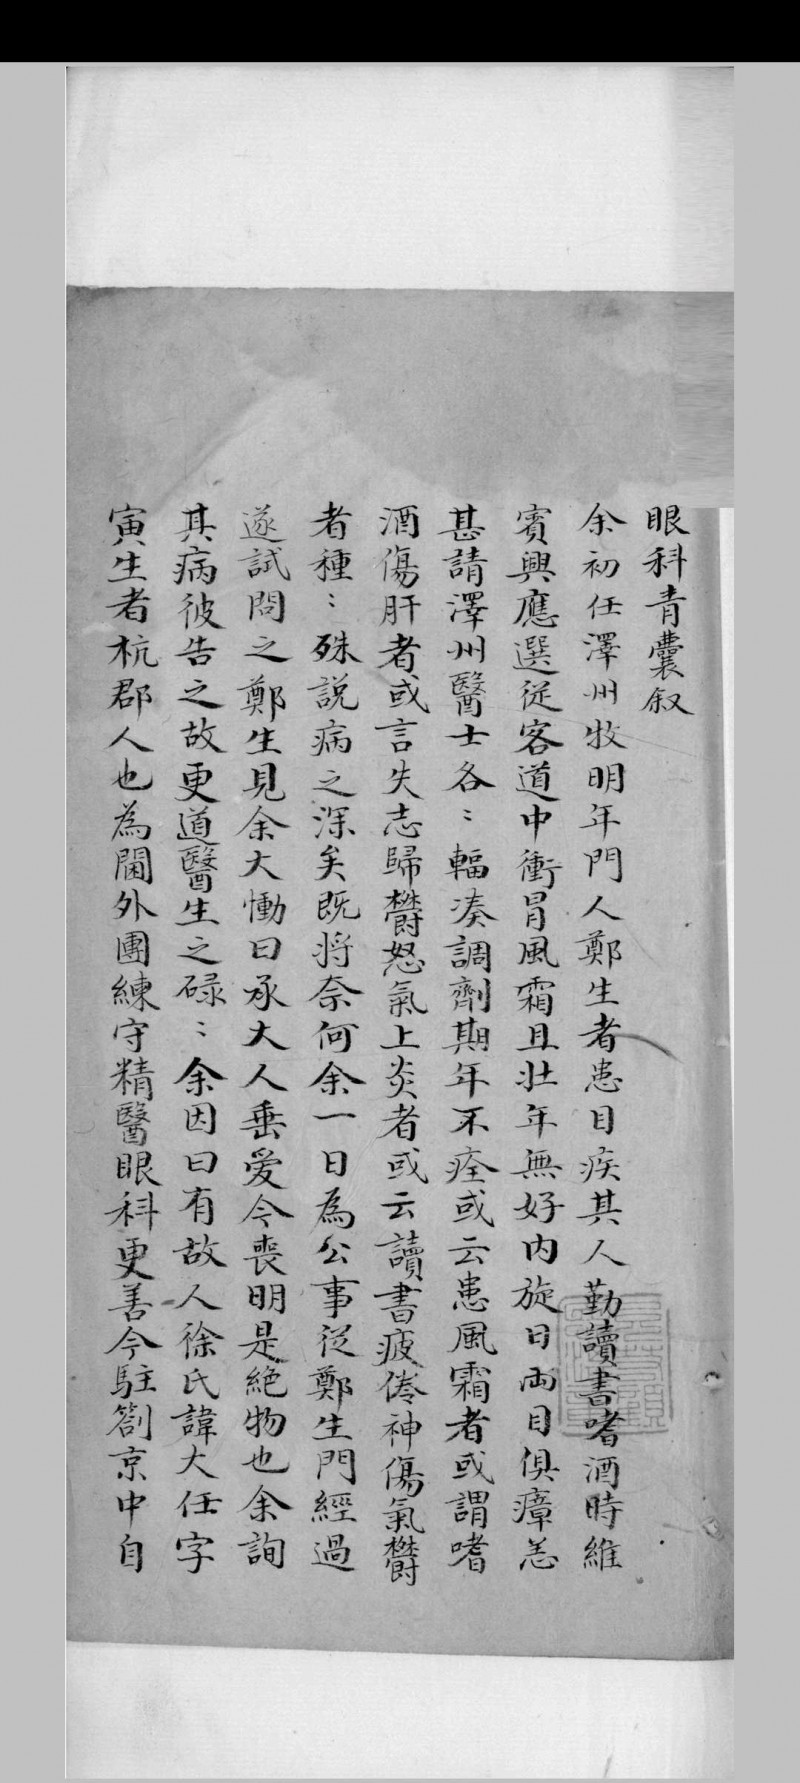 眼科青囊叙
余初任澤州牧明年門人鄭生者患目疾其人勤讀書嗜酒時維
賓興應選従客道中衝冒風霜且壯年無好内旋日両目俱瘴恙
甚請澤州醫士各〻輻凑調劑期年不痊或云患風霜者或謂嗜
酒傷肝者或言失志歸欝怒氣上炎者或云讀書疲倦神傷氣欝
者種〻殊説病之深矣既将奈何余一日為公事従鄭生門經過
遂試問之鄭生見余大慟曰承大人垂愛今喪明是絶物也余詢
其病彼告之故更道醫生之碌〻余因曰有故人徐氏諱大任字
寅生者杭郡人也為閫外團練守精醫眼科更善今駐劄京中自